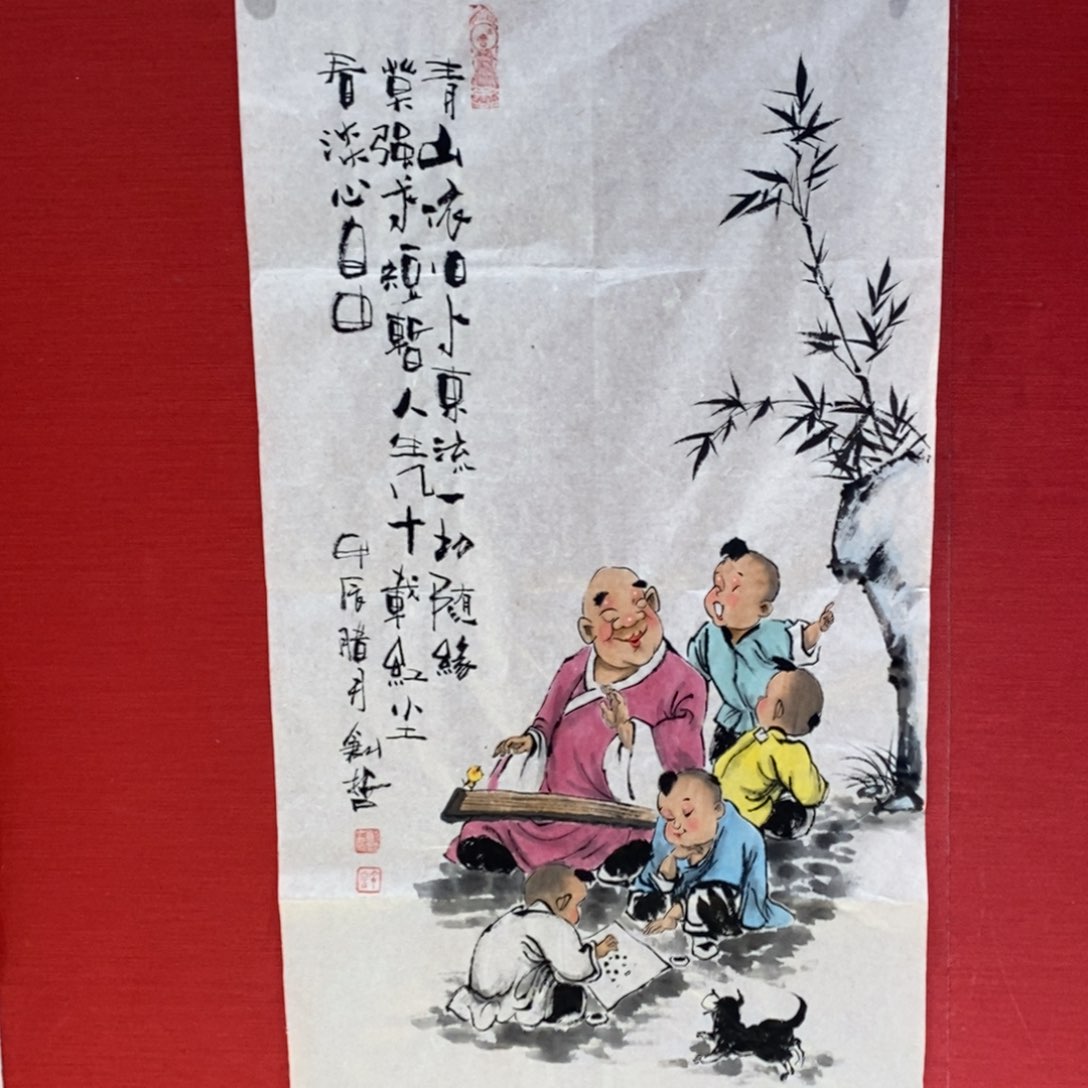 青山依旧水东流一切随缘
莫强求短暂人生几十载红尘
看淡心自由
甲辰腊月剑哲